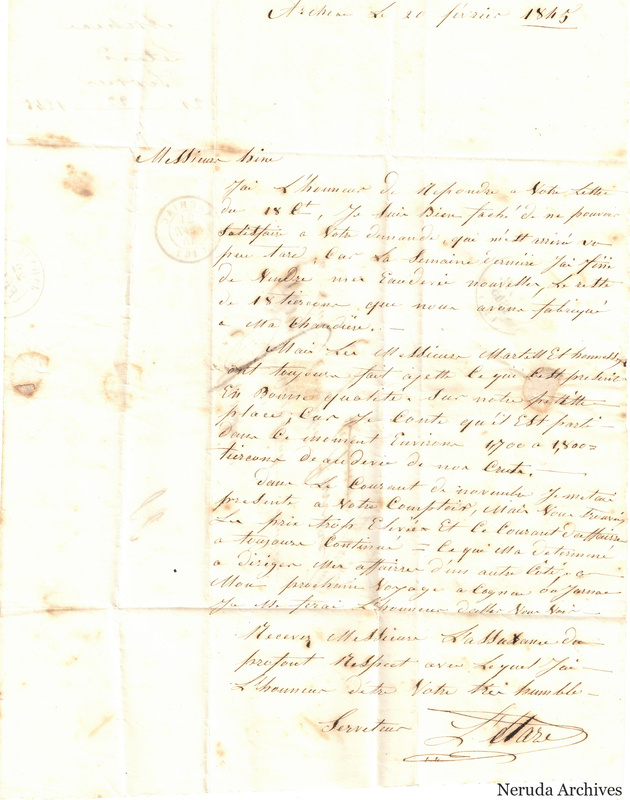 Archiac Le 20 février 1845
Messieurs hine
J'ai L'honneur de Repondre a Votre Lettre
du 18 Ct, Je suis Bien faché de ne pouvoir
Satisfaire a Votre demande, qui m'est arrivé un
peu tard, Car La Semaine derniére J'ai fini
de Vendre mes Eauxdevie nouvelles, Le reste
de 18 tiercons que nous avons fabriqué
a Ma Chaudiére. —
Mais Les Messieurs Martell Et hennessy
ont toujours fait ce que C'est presenté
En Bonne qualité Sur notre petitte
place, Car Je Conte qu'il Est parti
dans Ce moment Environs 1700 a 1800
tiercons deaudevie de nos Crus. —
dans Le Courant de novembre Je me
presenté a Votre Comptoir, Mais Vous
Les prix trop Elevés Et Ce Courant d'affaires
a toujours Continué = Ce qui Ma determiné
a diriger Mes affaires d'un autre Coté, a
Mon prochain Voyage a Cognac ou Jarnac
Je Me ferai L'honneur daller Vous Voir
Recevez Messieurs L'assurance du
profont Respect avec Lequel J'ai
L'honneur d'etre Votre tres humble
Serviteur
Neruda Archives